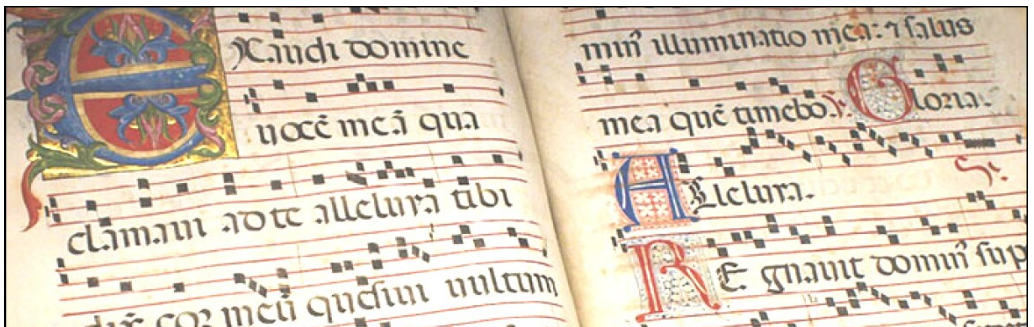 EXaudi domine
vocē meā qua
clamaui ad te alleluya tibi
cor meū quesiui uultum
min̄ illuminatio mea: ⁊ salus
mea quē timebo. Gloria.
Alleluya.
REgnauit domin̄ sup